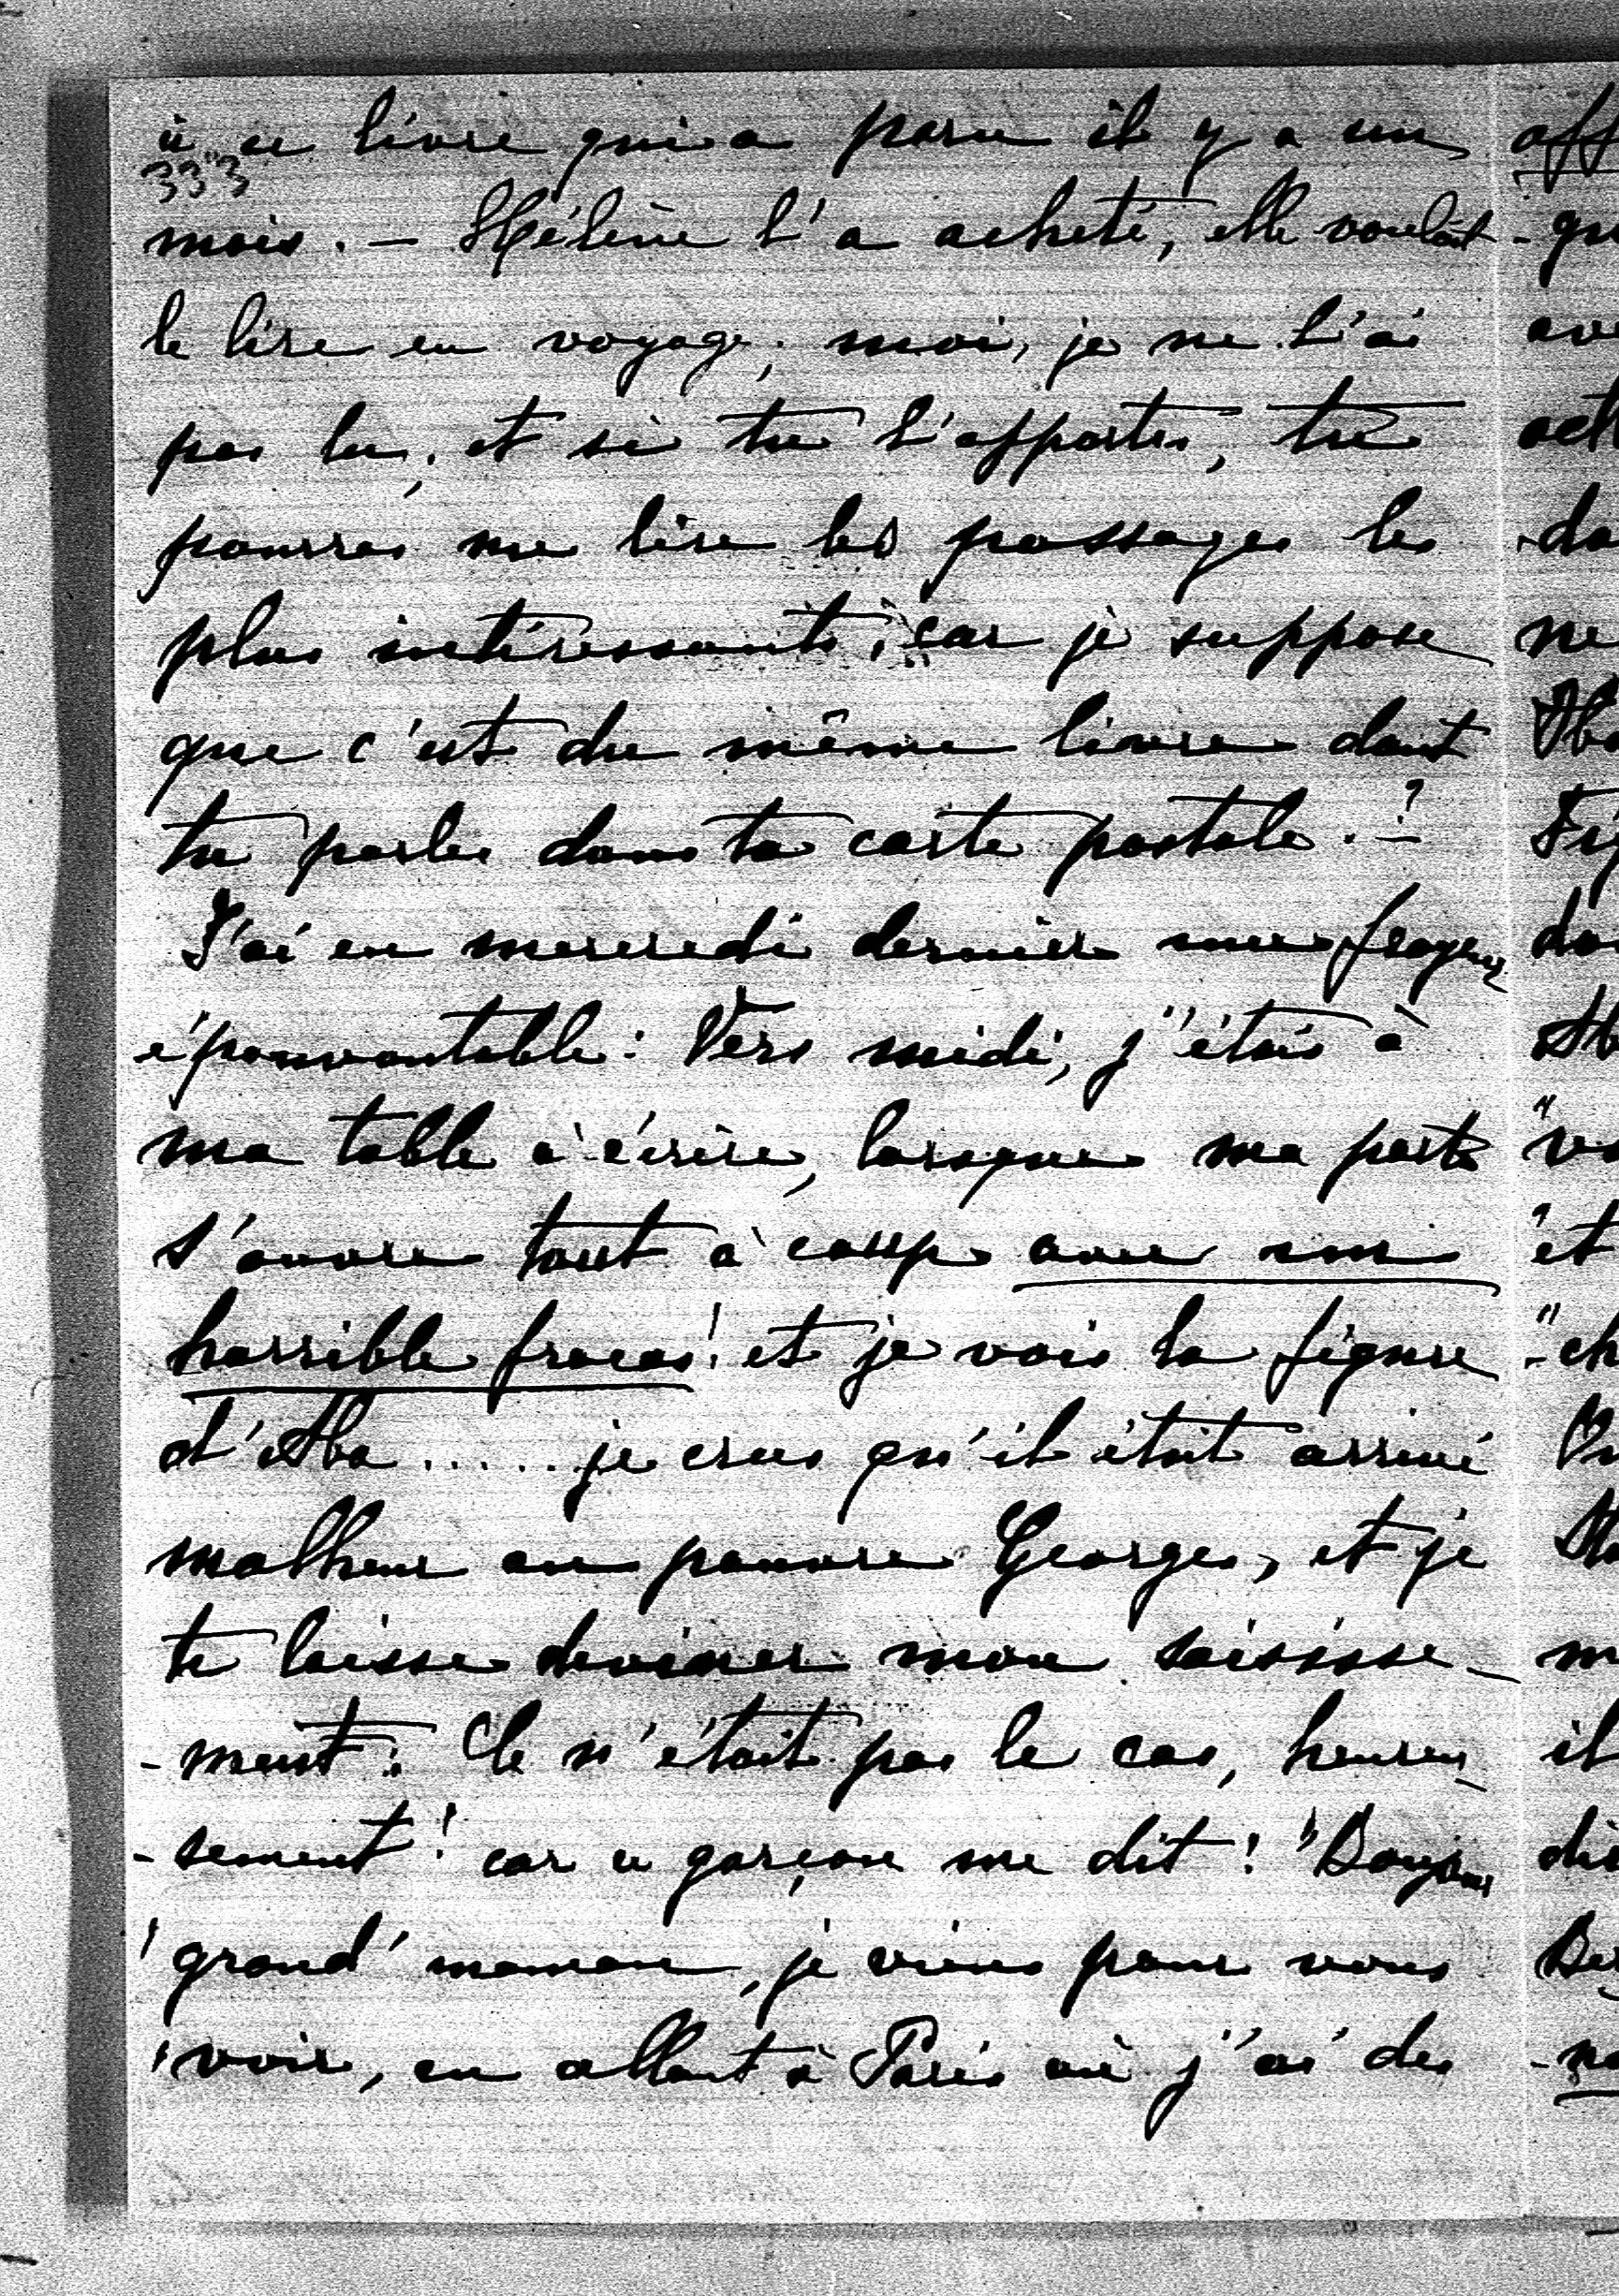 à ce livre qui a paru il y a un
333
mois. — Hélène l'a acheté, elle voulait
le lire en voyage; moi, je ne l'ai
pas lu; et si tu l'apportes, tu
pourras me lire les passages les
plus intéressants; car je suppose
que c'est du même livre dont
tu parles dans ta carte postale. — ?
J'ai eu mercredi dernier une frayeur
épouvantable: Vers midi, j'étais à
ma table à écrire, lorsque ma porte
s'ouvre tout à coup avec un
horrible fracas! et je vois la figure
d'Aba ...... je crus qu'il était arrivé
malheur au pauvre Georges, et je
te laisse deviner mon saisisse-
-ment: Ce n'était pas le cas, heureu-
-sement! car ce garçon me dit: "Bonjour
"grand'maman, je viens pour vous
"voir, en allant à Paris où j'ai des
off
- qu
av
act
da
ne
Fig
da
"vo
"et
"ch
m
il
dis